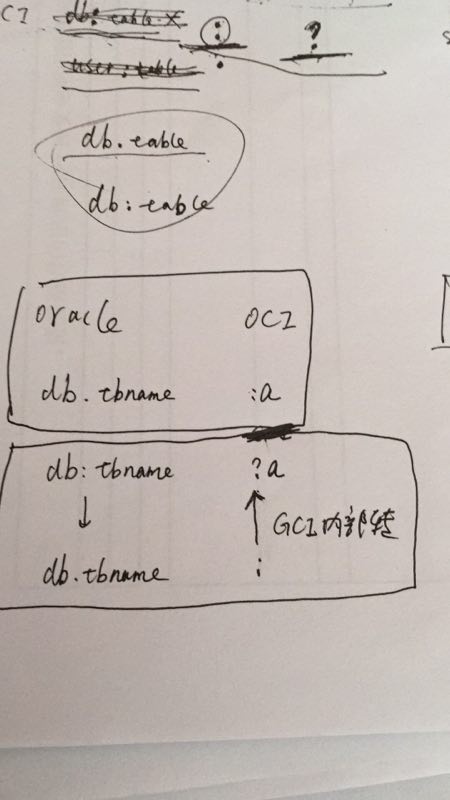 CI db: table X : ?
user: table
db.table
db: table
oracle OCI
db.tbname :a
db: tbname ?a
↓ ↑ GCI内部转
db.tbname :